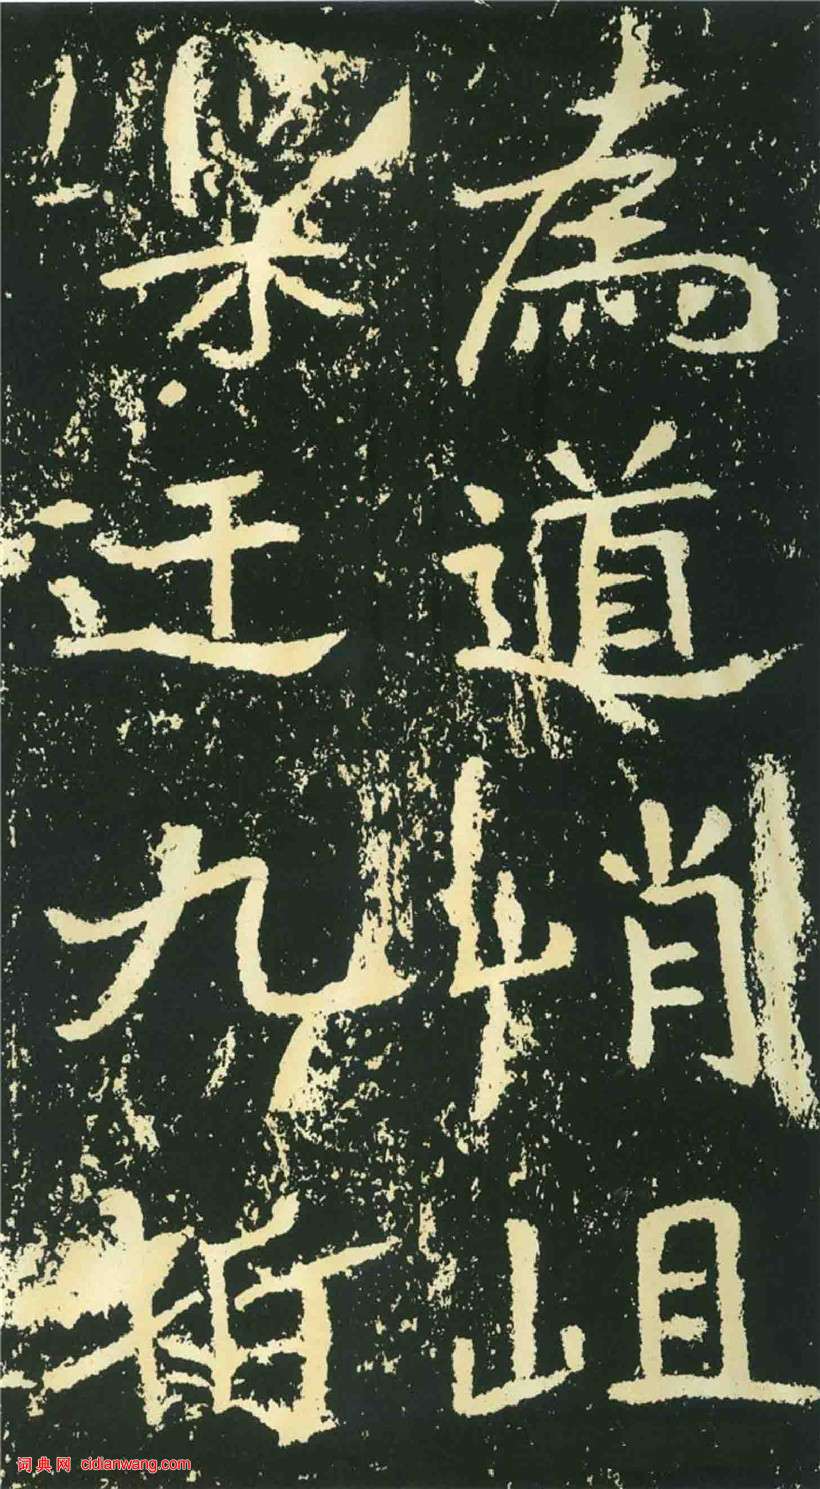 為道峭岨
梁迂九栢
词典网 cidianwang.com